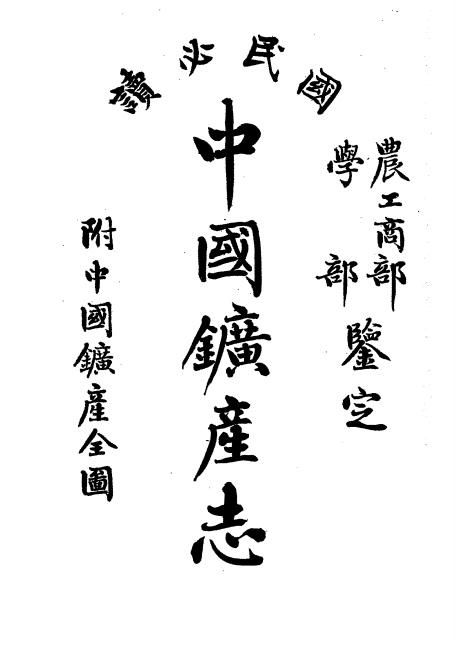 國民必讀
農工商部
學部
鑒定
中國鑛產志
附中國鑛產全圖